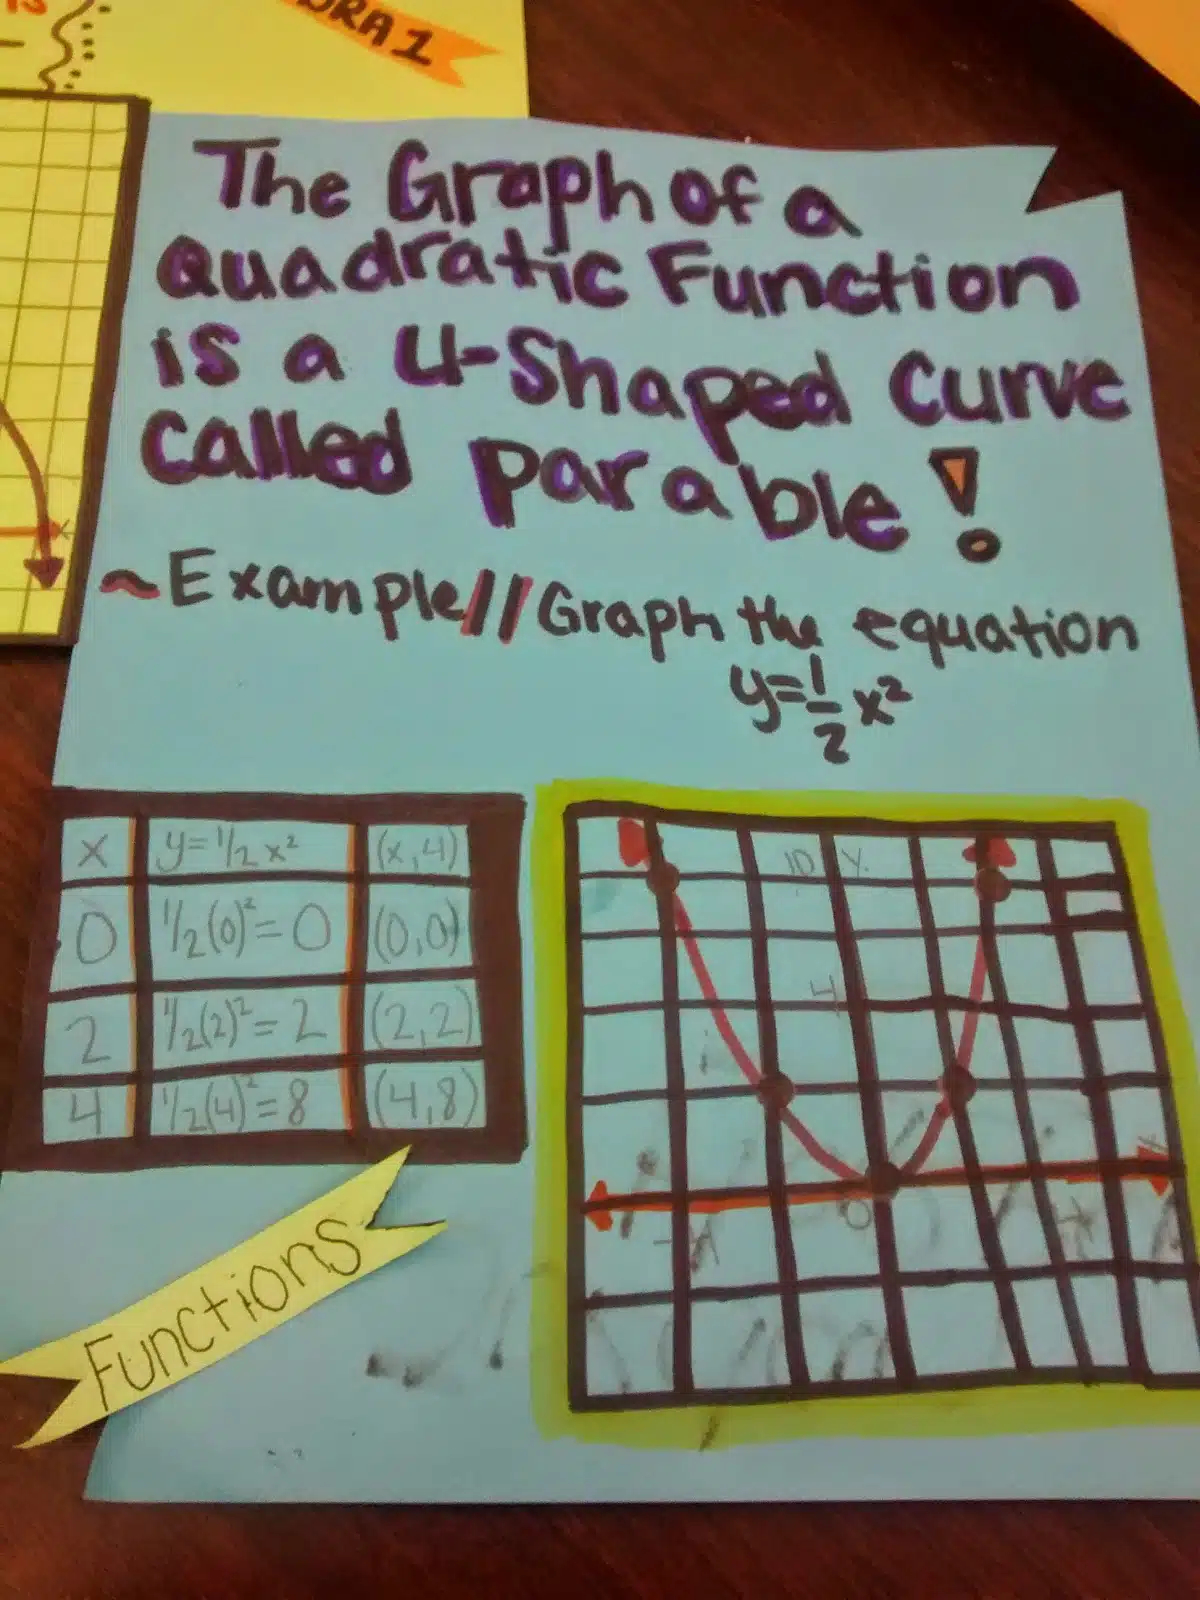 The Graph of a
Quadratic Function
is a U-Shaped Curve
called parable!
~Example//Graph the equation
y=1/2 x²
x y=1/2 x² (x,4)
0 1/2(0)²=0 (0,0)
2 1/2(2)²=2 (2,2)
4 1/2(4)²=8 (4,8)
10 y
4
x
0
-4 4
Functions